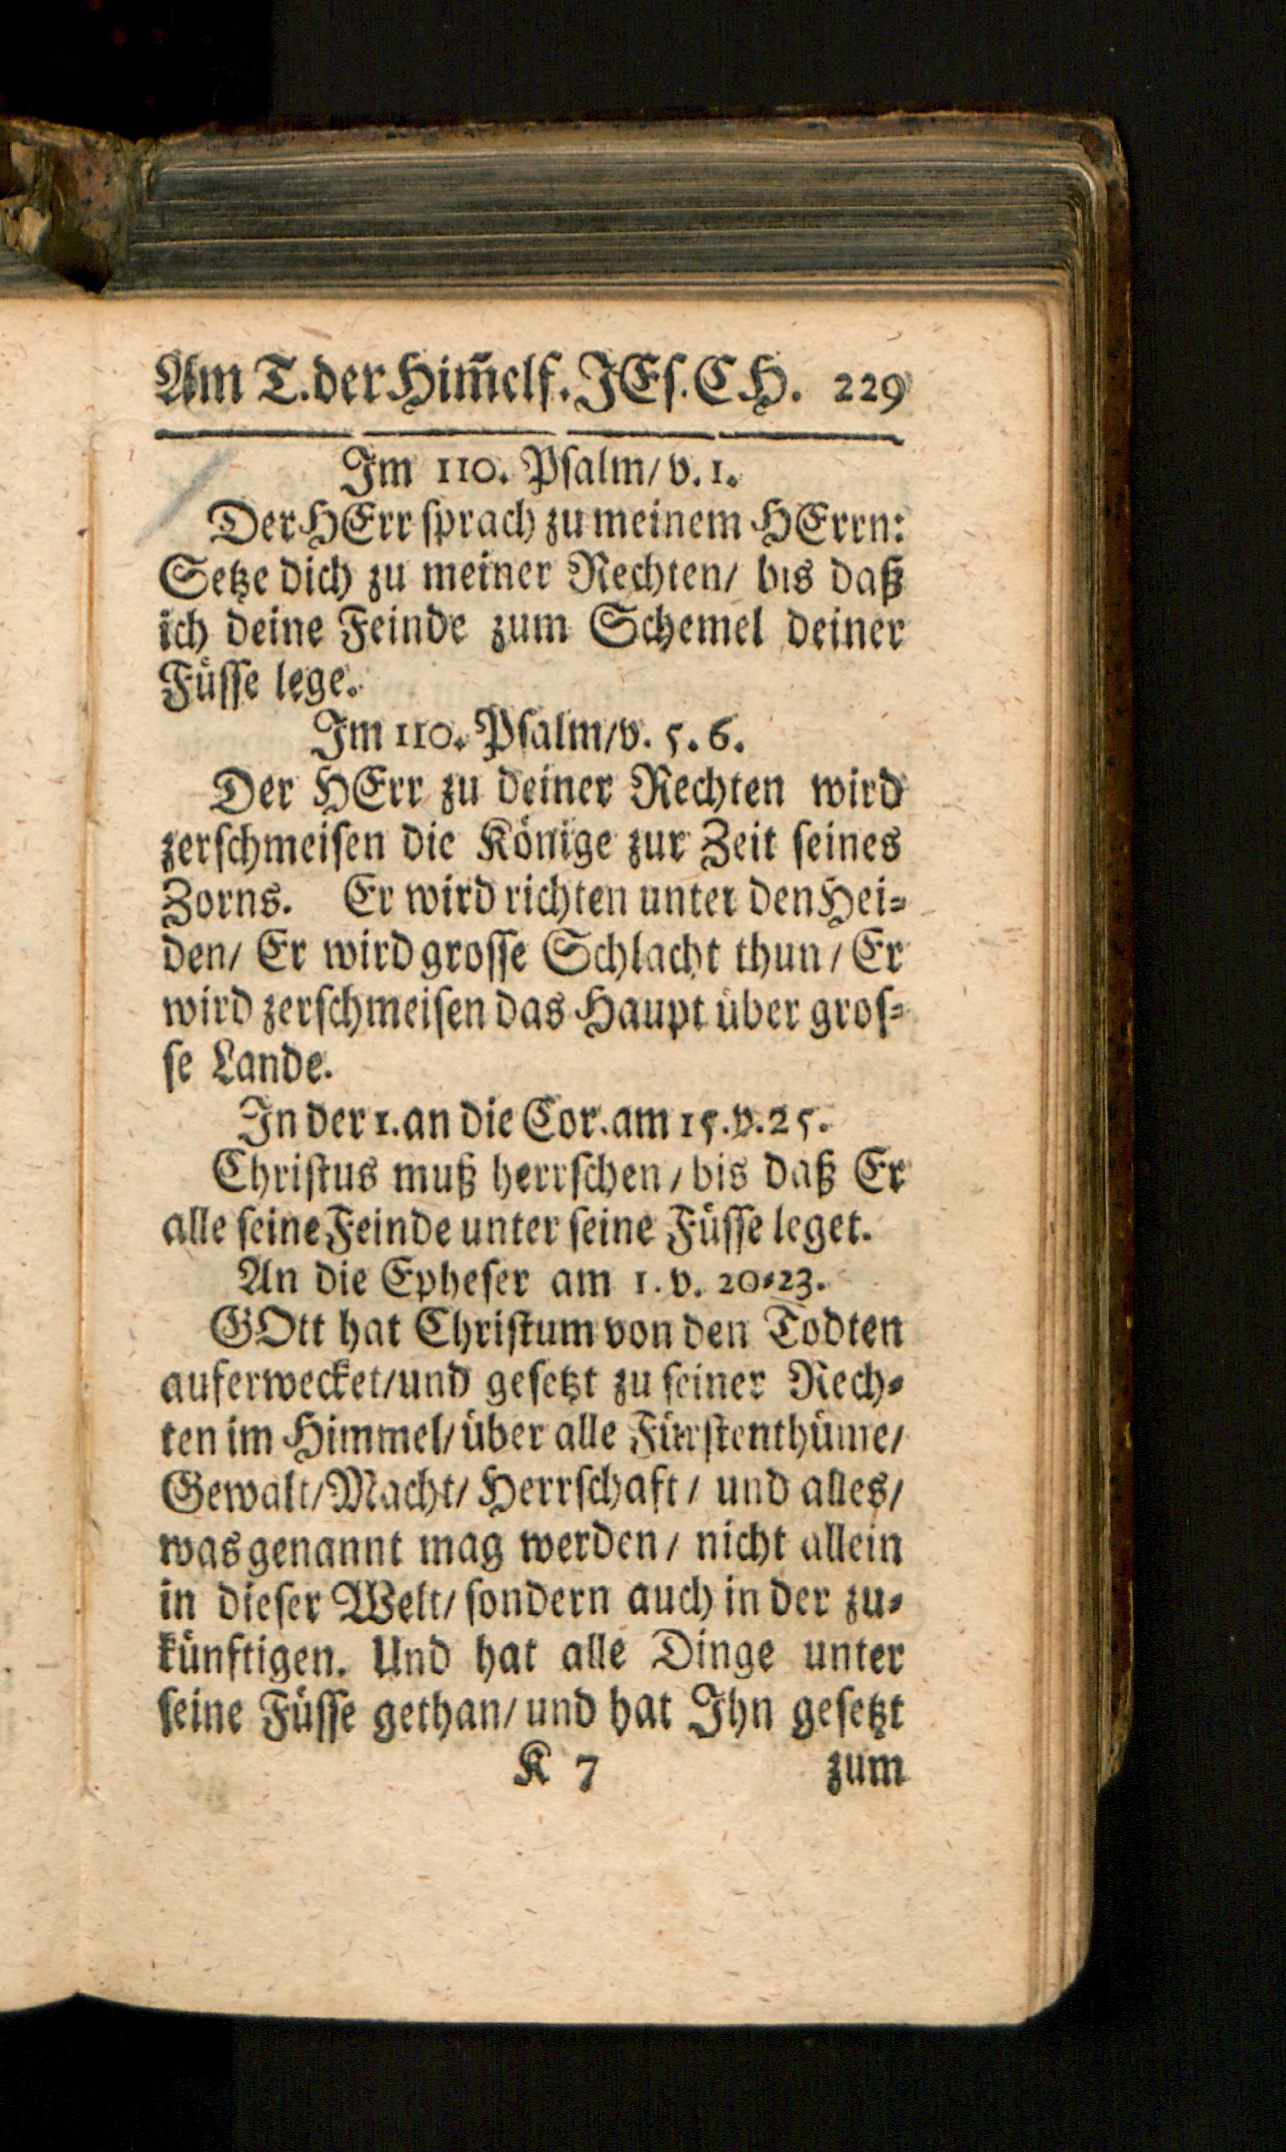 Am T. der Him̃elf. JEſ. C H. 229
Im 110. Pſalm/ v. 1.
Der HErr ſprach zu meinem HErrn:
Setze dich zu meiner Rechten/ bis daß
ich deine Feinde zum Schemel deiner
Füſſe lege.
Im 110. Pſalm/v. 5. 6.
Der HErr zu deiner Rechten wird
zerſchmeiſen die Könige zur Zeit ſeines
Zorns. Er wird richten unter den Hei⸗
den/ Er wird groſſe Schlacht thun/ Er
wird zerſchmeiſen das Haupt über groſ⸗
ſe Lande.
In der 1. an die Cor. am 15. v. 25.
Chriſtus muß herrſchen/ bis daß Er
alle ſeine Feinde unter ſeine Füſſe leget.
An die Epheſer am 1. v. 20⸗23.
GOtt hat Chriſtum von den Todten
auferwecket/und geſetzt zu ſeiner Rech⸗
ten im Himmel/ über alle Fürſtenthüme/
Gewalt/Macht/ Herrſchaft/ und alles/
was genannt mag werden/ nicht allein
in dieſer Welt/ ſondern auch in der zu⸗
künftigen. Und hat alle Dinge unter
ſeine Füſſe gethan/ und hat Ihn geſetzt
K 7 zum